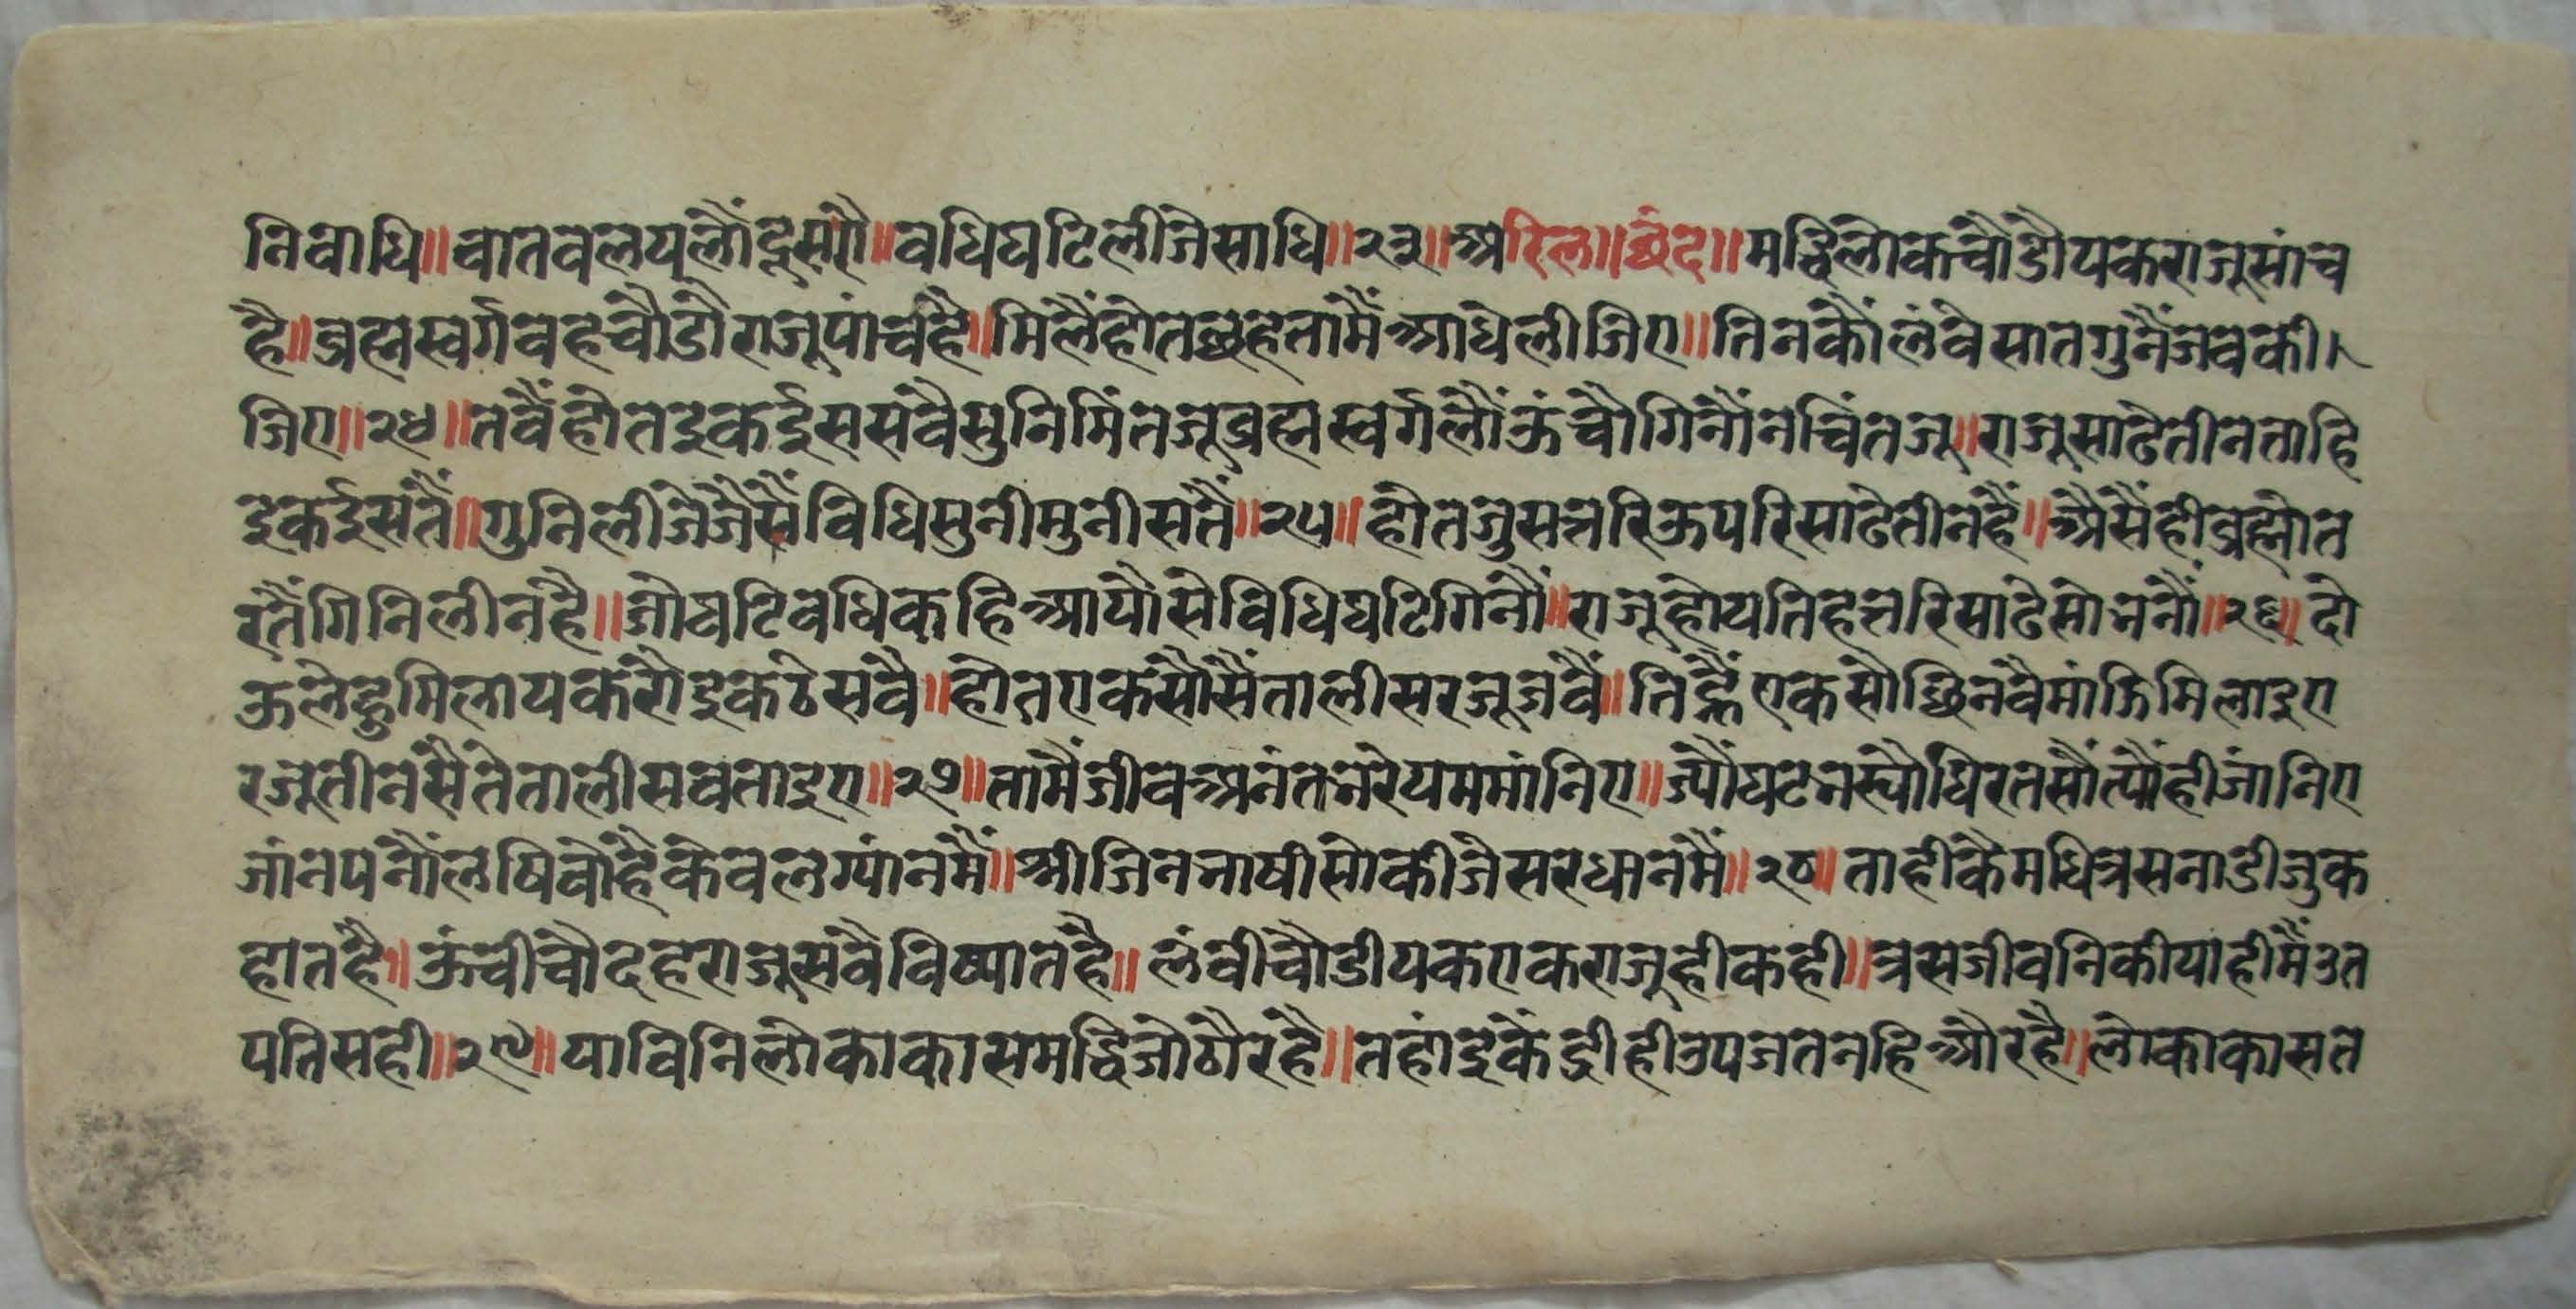 निवाधि॥वातवलयलौंदूसरौ॥वधिघटिलीजैसाधि॥२३॥अरिल॥छंद॥मद्धिलोकचौंडौयकराजूसांच
है॥ब्रह्मस्वर्गवहचौडौराजूपांचहै॥मिलैंहोतछहतामैंआधेलीजिए॥तिनकौंलंवेसातगुनैंजवकी।
जिए॥२४॥तवैंहोतइकईससवैसुनिमिंतजूब्रह्मस्वर्गलौंऊंचौगिनौंनचिंतजू॥राजूसाढेतीनताहि
इकईसतैं॥गुनिलीजैजैसैंविधिसुनीमुनीसतैं॥२५॥होतजुसत्तरिऊपरिसाढेतीनहैं॥अैसैंहीब्रह्मोत
रतैंगिनिलीनहै॥जोघटिवधिकहिआयौसेविधिघटिगिनौं॥राजूहोयतिहत्तरिसाढेसोभनौं॥२६॥दो
ऊलेहुमिलायकरौइकठेसवै॥होतएकसौसैंतालीसरजूजवैं॥तिह्मैंएकसौछिनवैमांझिमिलाइए
रजूतीनसैतेतालीसवताइए॥२७॥तामैंजीवअनंतभरेयममांनिए॥ज्यौंघटभस्यौघिरतसौंत्यौंहीजांनिए
जांनपनौंलषिवोहैकेवलग्यांनमैं॥श्रीजिनभाषीसोकीजैसरधानमैं॥२८॥ताहीकैमधित्रसनाडीजुक
हातहै॥ऊंचीचौदहराजूसवैविष्यातहै॥लंवीचौडीयकएकराजूहीकही॥त्रसजीवनिकीयाहीमैंउत
पतिसही॥२९॥याविनिलोकाकासमद्धिजोठौरहै॥तहांइकेंद्रीहीउपजतनहिऔरहै॥लोकाकासत